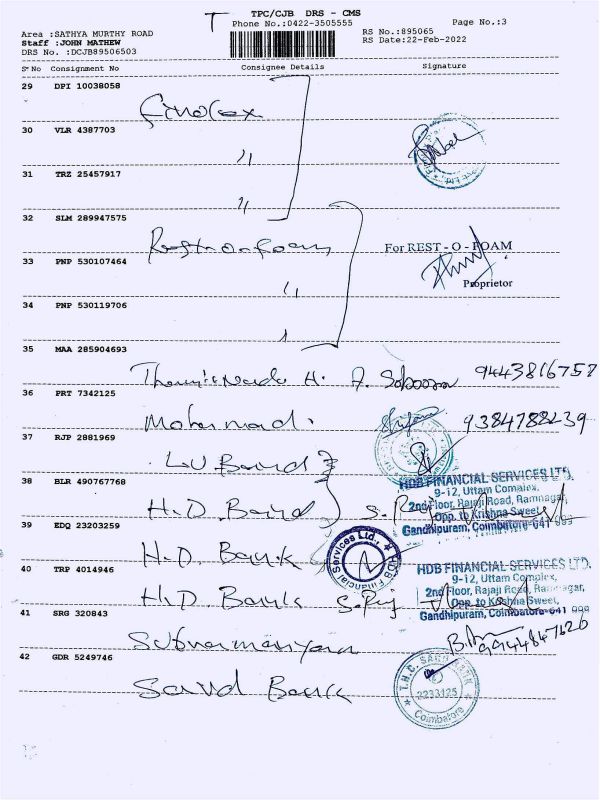 TPC/CJB DRS - CMS
Phone No.:0422-3505555
Page No.:3
Area :SATHYA MURTHY ROAD
Staff :JOHN MATHEW
DRS No. :DCJB89506503
RS No.:895065
RS Date:22-Feb-2022
S* No Consignment No Consignee Details Signature
29 DPI 10038058
Finolex
30 VLR 4387703
"
31 TRZ 25457917
"
32 SLM 289947575
Restonfoam
For REST - O - FOAM
33 PNP 530107464
"
Proprietor
34 PNP 530119706
35 MAA 285904693
H. A. 9443816758
36 PRT 7342125
Mohammad. 9384788239
37 RJP 2881969
38 BLR 490767768
HDB FINANCIAL SERVICES LTD.
9-12, Uttam Complex,
2nd Floor, Rajaji Road, Ramnagar,
Opp. to Krishna Sweet,
Gandhipuram, Coimbatore-641 009
H.D. Band
39 EDQ 23203259
H.D. Bank
40 TRP 4014946
HDB FINANCIAL SERVICES LTD.
9-12, Uttam Complex,
2nd Floor, Rajaji Road, Ramnagar,
Opp. to Krishna Sweet,
Gandhipuram, Coimbatore-641 009
H.D. Bank
41 SRG 320843
Subramaniyam 9944847626
42 GDR 5249746
Bank
2233125
Coimbatore